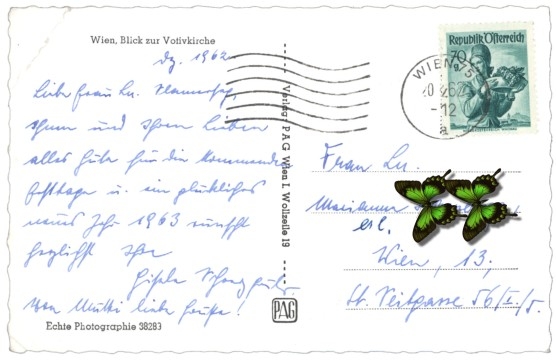 Wien, Blick zur Votivkirche
Dez. 1962
Liebe Frau Ln.
Ihnen und Ihren Lieben
alles Gute für die kommenden
Festtage u. ein glückliches
neues Jahr 1963 wünscht
herzlichst Ihre
Gisela
Von Mutti liebe Grüße!
Echte Photographie 38283
Verlag PAG Wien I, Wollzeile 19
PAG
Republik Österreich
70
WIEN
-12
a
Frau Ln.
Marianne
Wien, 13,
St. Veitgasse 56/I./5.